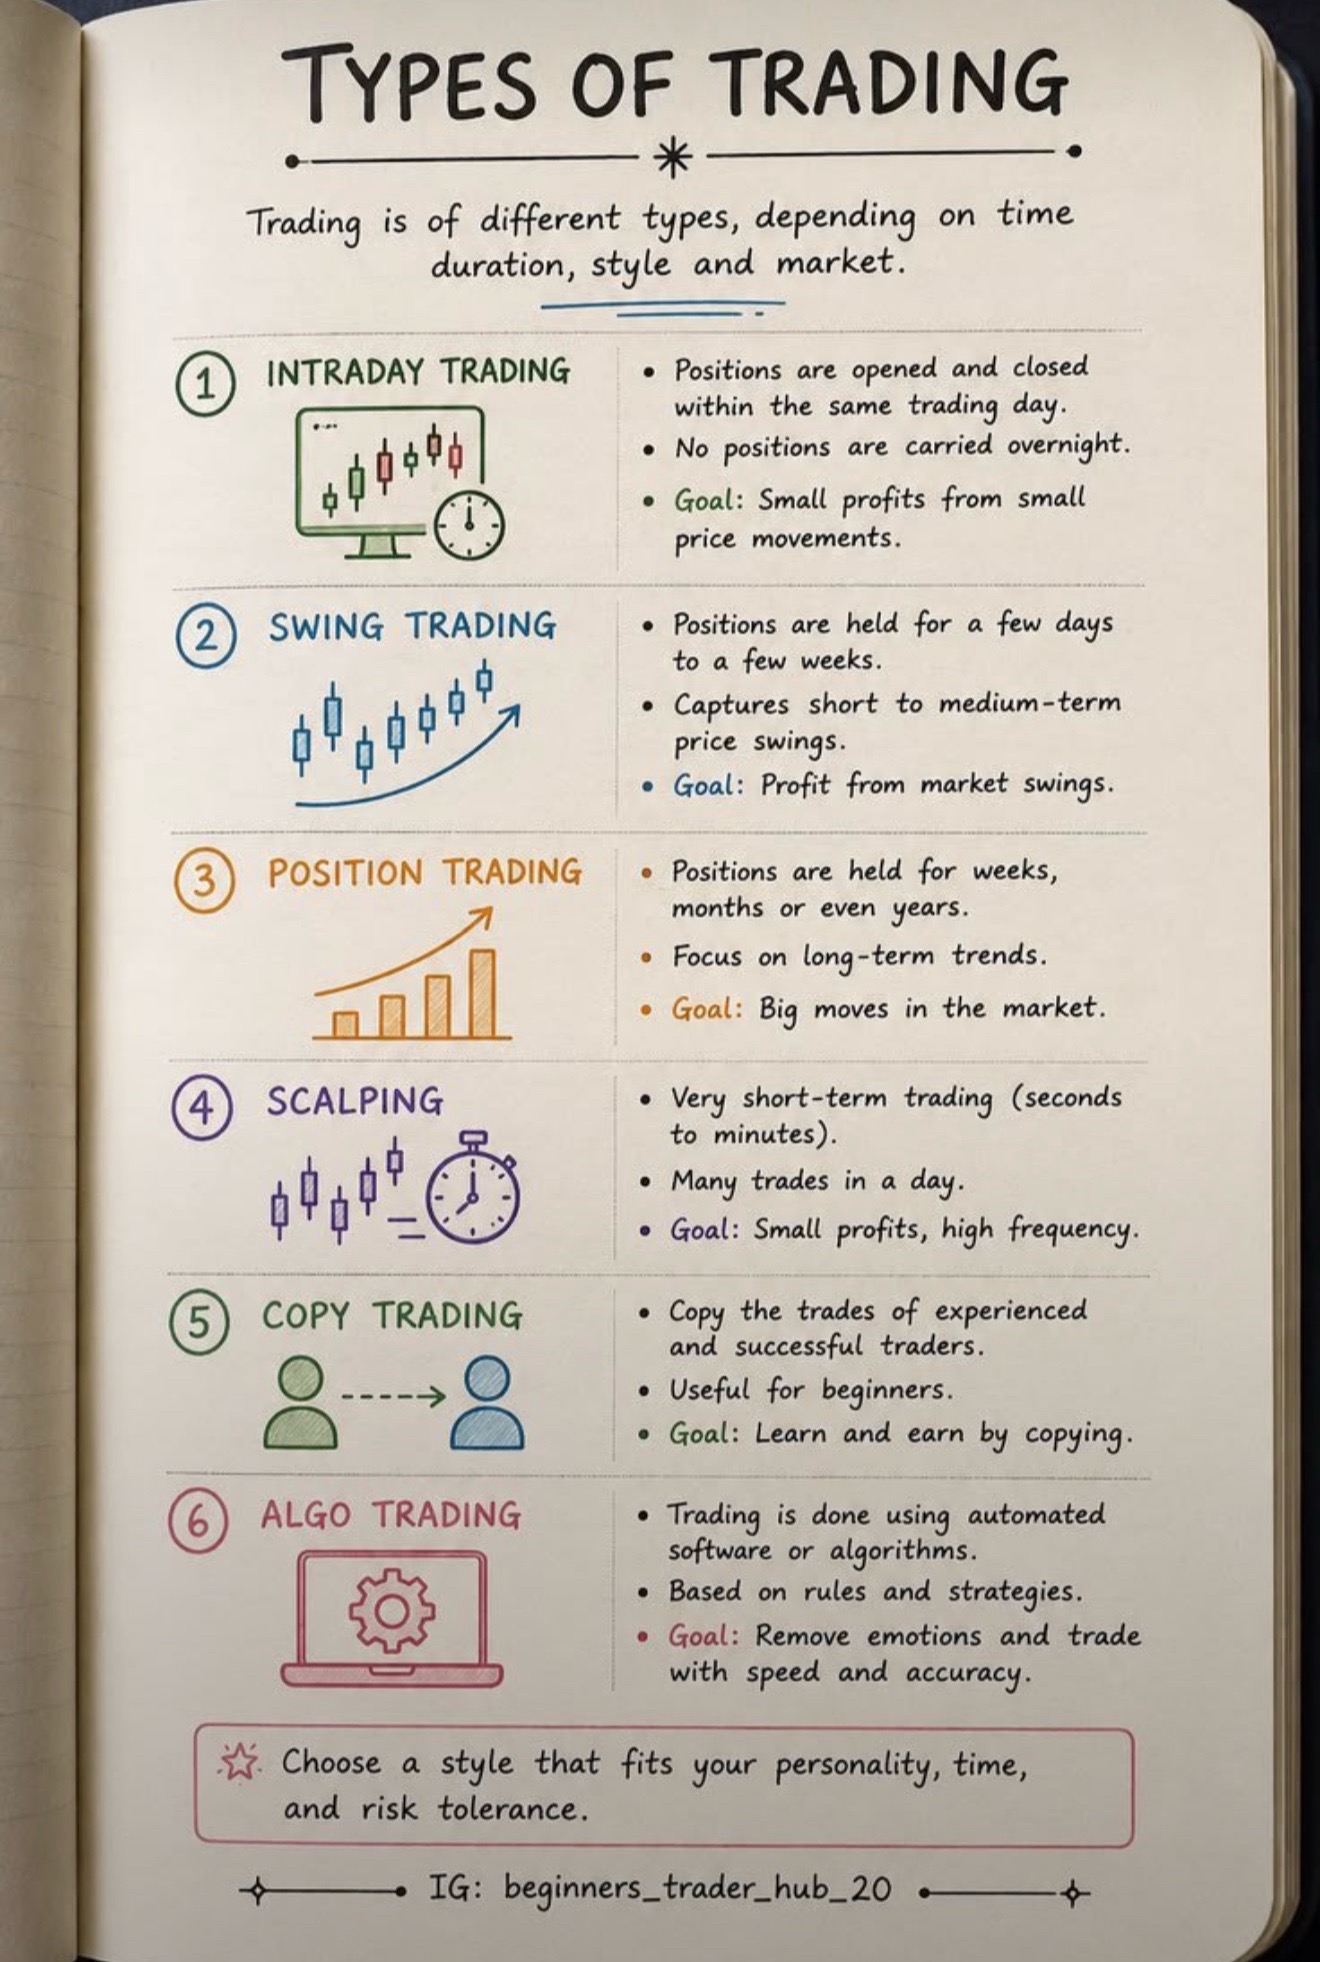 TYPES OF TRADING
Trading is of different types, depending on time
duration, style and market.
1 INTRADAY TRADING
• Positions are opened and closed
within the same trading day.
• No positions are carried overnight.
• Goal: Small profits from small
price movements.
2 SWING TRADING
• Positions are held for a few days
to a few weeks.
• Captures short to medium-term
price swings.
• Goal: Profit from market swings.
3 POSITION TRADING
• Positions are held for weeks,
months or even years.
• Focus on long-term trends.
• Goal: Big moves in the market.
4 SCALPING
• Very short-term trading (seconds
to minutes).
• Many trades in a day.
• Goal: Small profits, high frequency.
5 COPY TRADING
• Copy the trades of experienced
and successful traders.
• Useful for beginners.
• Goal: Learn and earn by copying.
6 ALGO TRADING
• Trading is done using automated
software or algorithms.
• Based on rules and strategies.
• Goal: Remove emotions and trade
with speed and accuracy.
Choose a style that fits your personality, time,
and risk tolerance.
IG: beginners_trader_hub_20